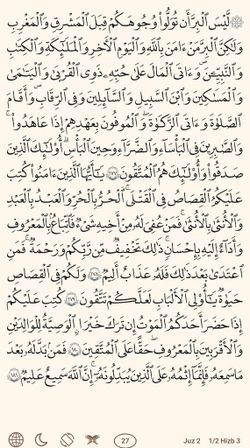 لَّيْسَ ٱلْبِرَّ أَن تُوَلُّوا۟ وُجُوهَكُمْ قِبَلَ ٱلْمَشْرِقِ وَٱلْمَغْرِبِ
وَلَٰكِنَّ ٱلْبِرَّ مَنْ ءَامَنَ بِٱللَّهِ وَٱلْيَوْمِ ٱلْءَاخِرِ وَٱلْمَلَٰٓئِكَةِ وَٱلْكِتَٰبِ
وَٱلنَّبِيِّۦنَ وَءَاتَى ٱلْمَالَ عَلَىٰ حُبِّهِۦ ذَوِى ٱلْقُرْبَىٰ وَٱلْيَتَٰمَىٰ
وَٱلْمَسَٰكِينَ وَٱبْنَ ٱلسَّبِيلِ وَٱلسَّآئِلِينَ وَفِى ٱلرِّقَابِ وَأَقَامَ
ٱلصَّلَوٰةَ وَءَاتَى ٱلزَّكَوٰةَ وَٱلْمُوفُونَ بِعَهْدِهِمْ إِذَا عَٰهَدُوا۟ ۖ
وَٱلصَّٰبِرِينَ فِى ٱلْبَأْسَآءِ وَٱلضَّرَّآءِ وَحِينَ ٱلْبَأْسِ ۗ أُو۟لَٰٓئِكَ ٱلَّذِينَ
صَدَقُوا۟ ۖ وَأُو۟لَٰٓئِكَ هُمُ ٱلْمُتَّقُونَ ١٧٧ يَٰٓأَيُّهَا ٱلَّذِينَ ءَامَنُوا۟ كُتِبَ
عَلَيْكُمُ ٱلْقِصَاصُ فِى ٱلْقَتْلَى ۖ ٱلْحُرُّ بِٱلْحُرِّ وَٱلْعَبْدُ بِٱلْعَبْدِ
وَٱلْأُنثَىٰ بِٱلْأُنثَىٰ ۚ فَمَنْ عُفِىَ لَهُۥ مِنْ أَخِيهِ شَىْءٌ فَٱتِّبَاعٌۢ بِٱلْمَعْرُوفِ
وَأَدَآءٌ إِلَيْهِ بِإِحْسَٰنٍ ۗ ذَٰلِكَ تَخْفِيفٌ مِّن رَّبِّكُمْ وَرَحْمَةٌ ۗ فَمَنِ
ٱعْتَدَىٰ بَعْدَ ذَٰلِكَ فَلَهُۥ عَذَابٌ أَلِيمٌ ١٧٨ وَلَكُمْ فِى ٱلْقِصَاصِ
حَيَوٰةٌ يَٰٓأُو۟لِى ٱلْأَلْبَٰبِ لَعَلَّكُمْ تَتَّقُونَ ١٧٩ كُتِبَ عَلَيْكُمْ
إِذَا حَضَرَ أَحَدَكُمُ ٱلْمَوْتُ إِن تَرَكَ خَيْرًا ٱلْوَصِيَّةُ لِلْوَٰلِدَيْنِ
وَٱلْأَقْرَبِينَ بِٱلْمَعْرُوفِ ۖ حَقًّا عَلَى ٱلْمُتَّقِينَ ١٨٠ فَمَنۢ بَدَّلَهُۥ بَعْدَ
مَا سَمِعَهُۥ فَإِنَّمَآ إِثْمُهُۥ عَلَى ٱلَّذِينَ يُبَدِّلُونَهُۥٓ ۚ إِنَّ ٱللَّهَ سَمِيعٌ عَلِيمٌ ١٨١
27 Juz 2 1/2 Hizb 3